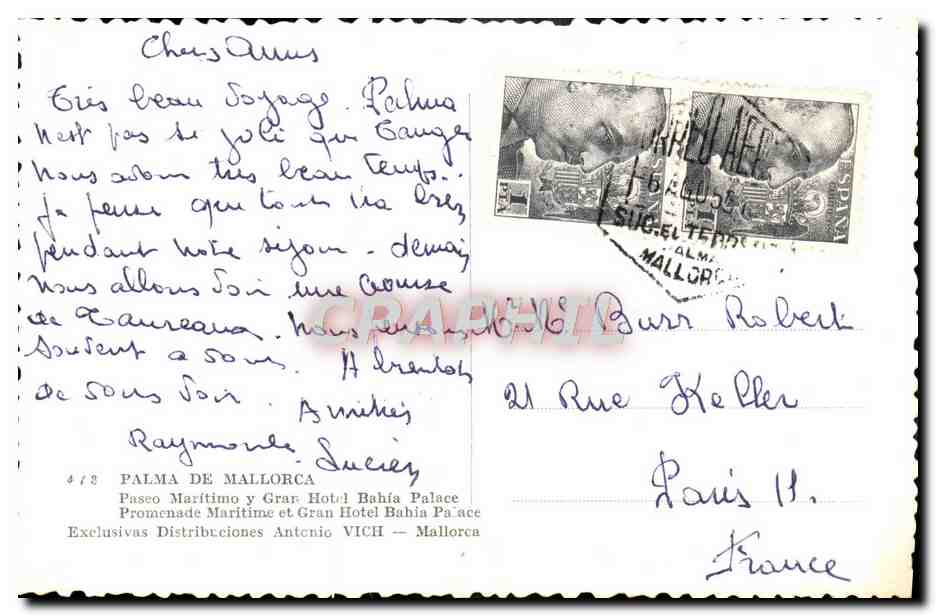 Chers Amis
Très beau Voyage. Palma
n'est pas si joli que Tanger
Nous avons très beau temps..
je pense que tout ira bien
pendant notre séjour - demain
nous allons voir une course
de Taureaux. Nous pensons
souvent à vous. A bientôt
de vous voir.
Amitiés
Raymonde
Lucien
412 PALMA DE MALLORCA
Paseo Marítimo y Gran Hotel Bahía Palace
Promenade Maritime et Gran Hotel Bahia Palace
Exclusivas Distribuciones Antonio VICH — Mallorca
CORREO AEREO
SUC. EL TERRENO
PALMA
MALLORCA
1 PTA
1
ESPAÑA
Burr Robert
21 Rue Keller
Paris 11.
France
CRAPHIL